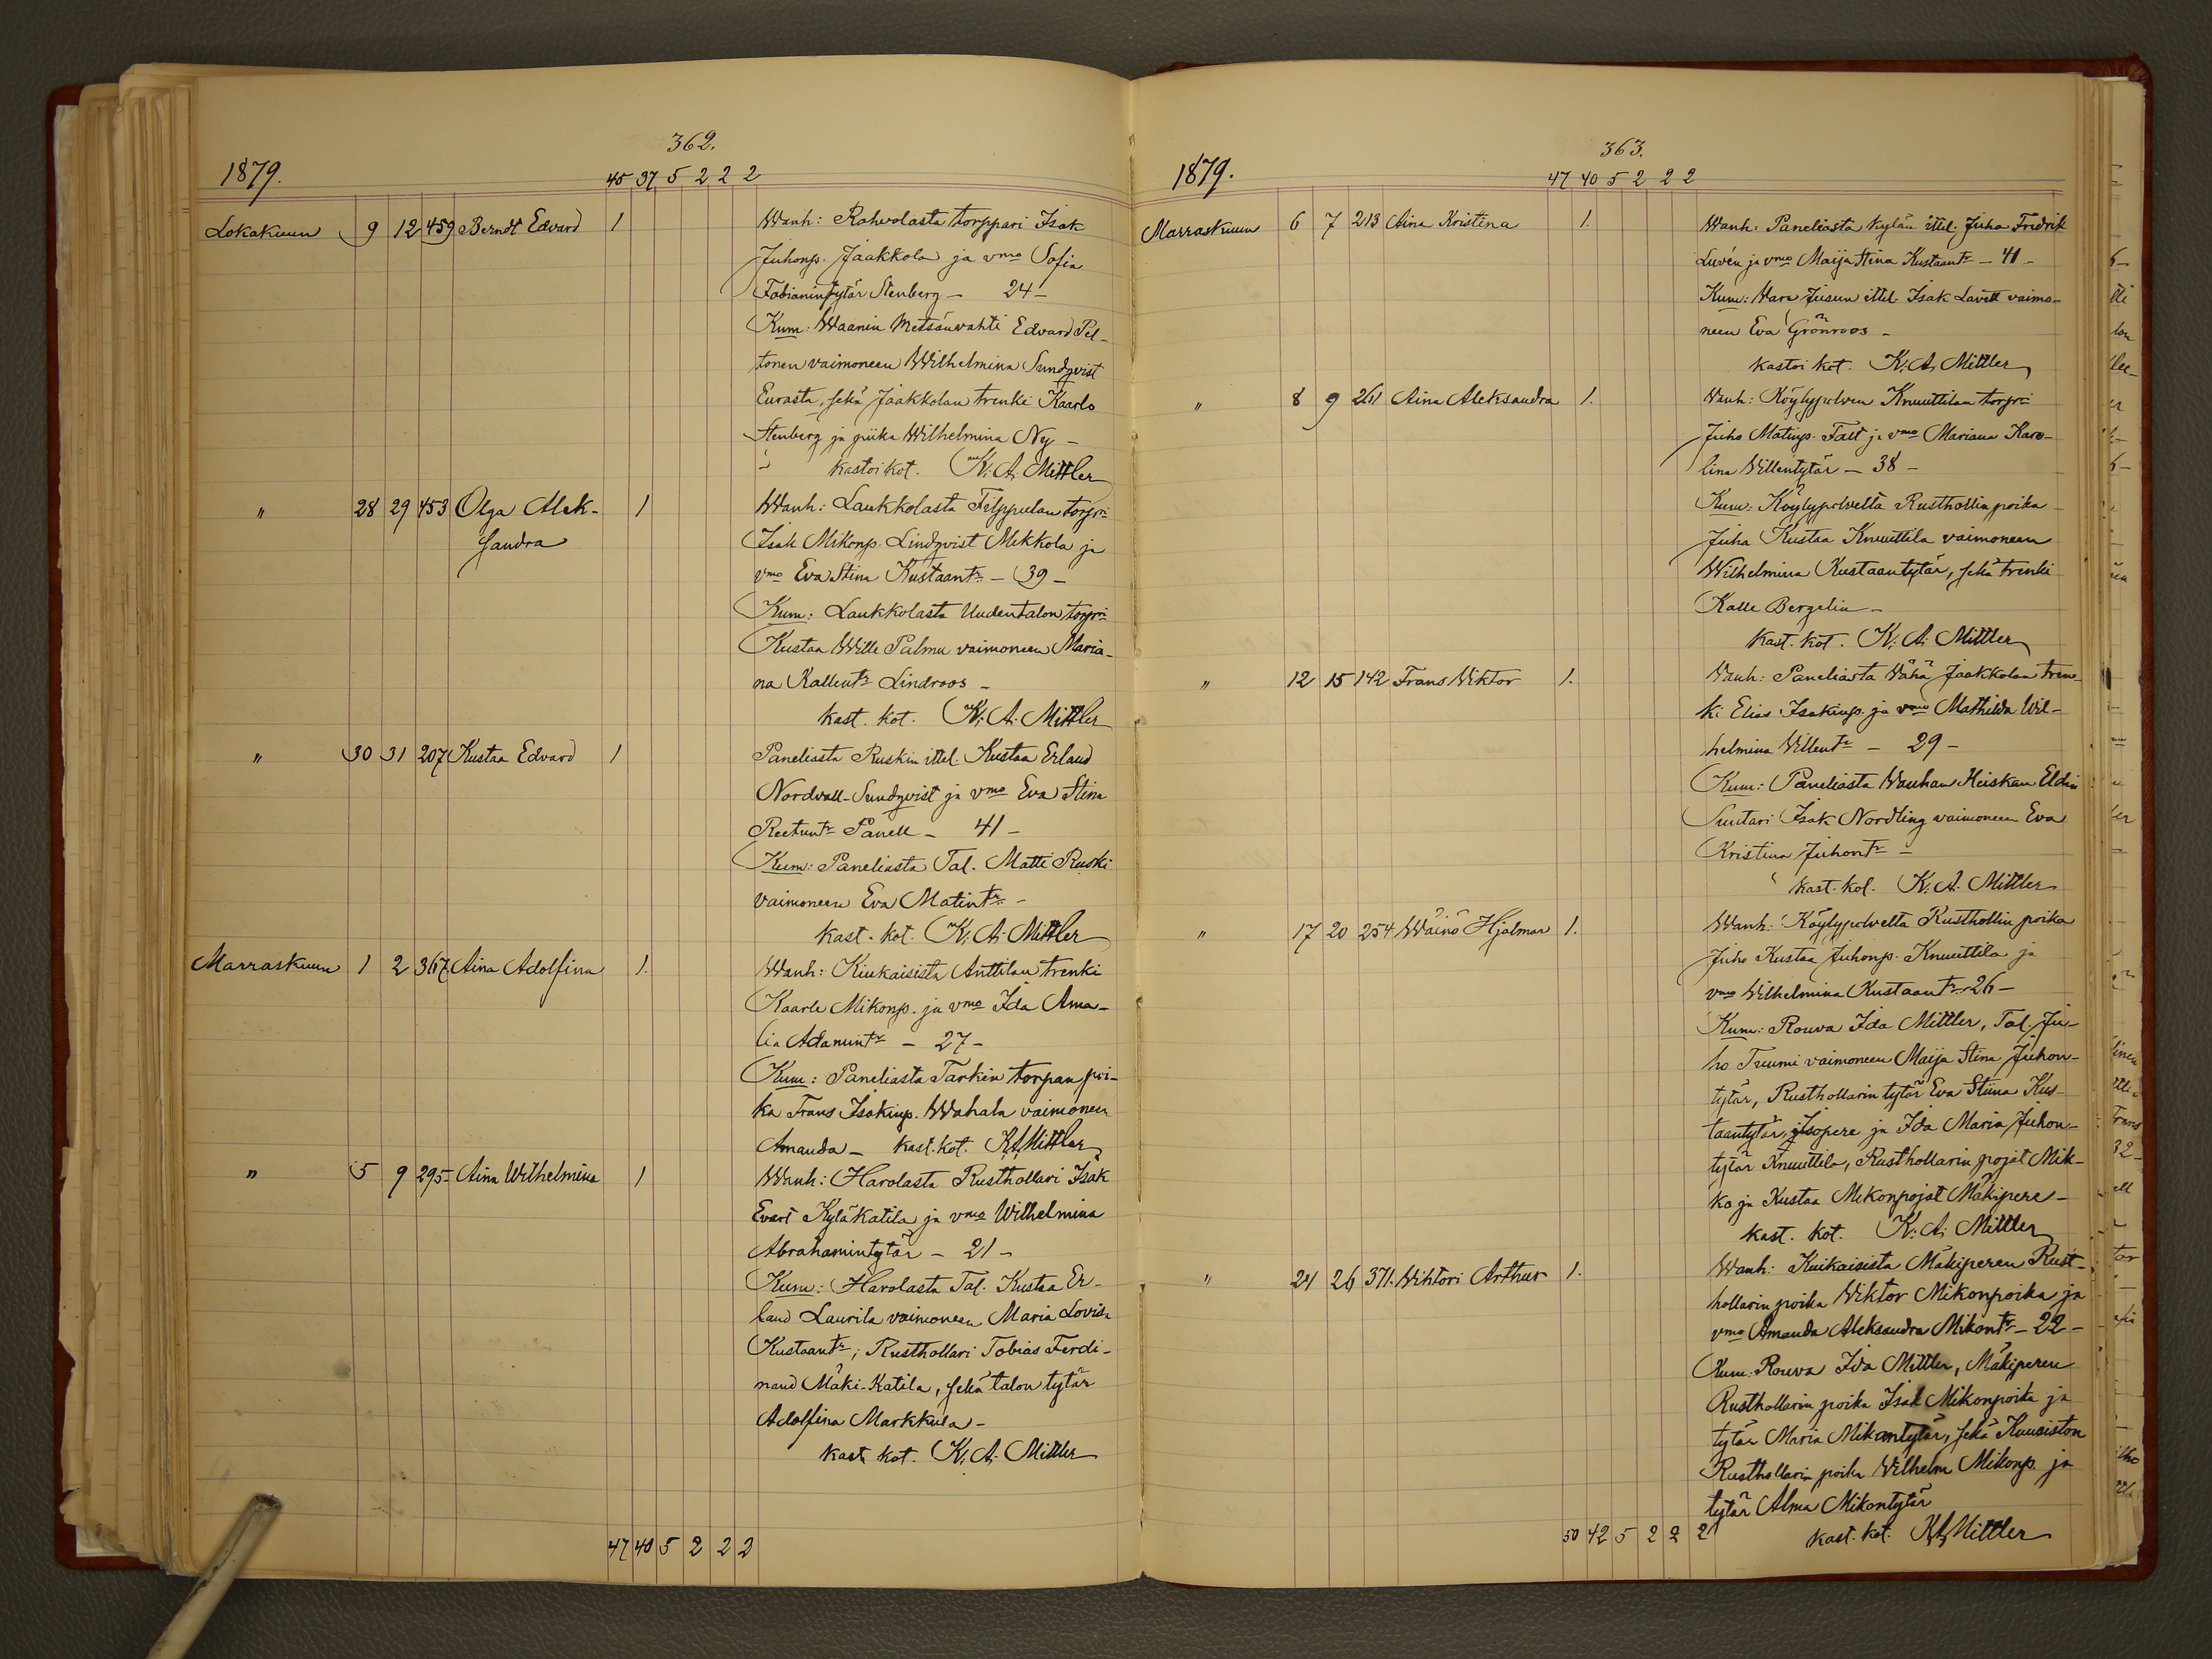 362.
1879.
45 37 5 2 2 2
Lokakuun 9 12 459 Berndt Edvard 1 Wanh: Rahvolasta torppari Isak
Juhonp. Jaakkola ja vmo Sofia
Fabianintytär Stenberg — 24 —
Kum: Waanin Metsänvahti Edvard Pel-
tonen vaimoneen Wilhelmina Sundqvist
Eurasta, sekä Jaakkolan trenki Kaarlo
Stenberg ja piika Wilhelmina Ny —
kastoi kot. K. A. Mittler
" 28 29 453 Olga Alek- 1 Wanh: Laukkolasta Filppulan torpri
sandra Isak Mikonp. Lindqvist Mikkola ja
vmo Eva Stina Kustaantr. — 39 —
Kum: Laukkolasta Uudentalon torpri
Kustaa Wille Palmu vaimoneen Maria-
na Kallentr Lindroos —
kast. kot. K. A. Mittler
" 30 31 207 Kustaa Edvard 1 Paneliasta Ruskin ittel. Kustaa Erland
Nordvall-Sundqvist ja vmo Eva Stina
Reetuntr Panell — 41 —
Kum: Paneliasta Tal. Matti Ruski
vaimoneen Eva Matintr. —
kast. kot. K. A. Mittler
Marraskuun 1 2 367. Aina Adolfina 1. Wanh: Kiukaisista Anttilan trenki
Kaarle Mikonp. ja vmo Ida Ama-
lia Adamintr — 27 —
Kum: Paneliasta Tarkin torpan poi-
ka Frans Isakinp. Wahala vaimoneen
Amanda — kast. kot. K A Mittler
" 5 9 295 Aina Wilhelmina 1 Wanh: Harolasta Rusthollari Isak
Evert Kyläkatila ja vmo Wilhelmina
Abrahamintytär — 21 —
Kum: Harolasta Tal. Kustaa Er-
land Laurila vaimoneen Maria Lovisa
Kustaantr; Rusthollari Tobias Ferdi-
nand Mäki-Katila, sekä talon tytär
Adolfina Markkula —
kast. kot. K. A. Mittler
47 40 5 2 2 2
363.
1879.
47 40 5 2 2 2
Marraskuun 6 7 213 Aina Kristina 1. Wanh: Paneliasta kylän ittel. Juha Fredrik
Luvén ja vmo Maija Stina Kustaantr — 41 —
Kum: Vara Jusun ittel. Isak Lavell vaimo-
neen Eva Grönroos —
kastoi kot. K. A. Mittler
" 8 9 261 Aina Aleksandra 1. Wanh: Köylypolven Knuuttilan torpri
Juho Matinp. Falt ja vmo Mariana Karo-
lina Villentytär — 38 —
Kum: Köylypolvelta Rusthollin poika
Juha Kustaa Knuuttila vaimoneen
Wilhelmina Kustaantytär, sekä trenki
Kalle Bergelin —
kast. kot. K. A. Mittler
" 12 15 142 Frans Viktor 1. Wanh: Paneliasta Vähä Jaakkolan tren-
ki Elias Isakinp. ja vmo Mathilda Wil-
helmina Villentr — 29 —
Kum: Paneliasta Wanhan Heiskan Eldin
Suutari Isak Nordling vaimoneen Eva
Kristina Juhontr —
kast. kot. K. A. Mittler
" 17 20 254 Wäinö Hjalmar 1. Wanh: Köylypolvelta Rusthollin poika
Juho Kustaa Juhonp. Knuuttila ja
vmo Wilhelmina Kustaantr. 26 —
Kum: Rouva Ida Mittler, Tal. Ju-
ho Tuumi vaimoneen Maija Stina Juhon-
tytär, Rusthollarin tytär Eva Stiina Kus-
taantytär Isopere ja Ida Maria Juhon-
tytär Knuuttila, Rusthollarin pojat Mik-
ko ja Kustaa Mikonpojat Mäkipere —
kast. kot. K. A. Mittler
" 24 26 371. Wihtori Arthur 1. Wanh: Kiukaisista Mäkiperen Rust-
hollarin poika Viktor Mikonpoika ja
vmo Amanda Aleksandra Mikontr — 22 —
Kum: Rouva Ida Mittler, Mäkiperen
Rusthollarin poika Isak Mikonpoika ja
tytär Maria Mikontytär, sekä Kuusiston
Rusthollarin poika Vilhelm Mikonp. ja
tytär Alma Mikontytär
50 42 5 2 2 2 kast. kot. K A Mittler